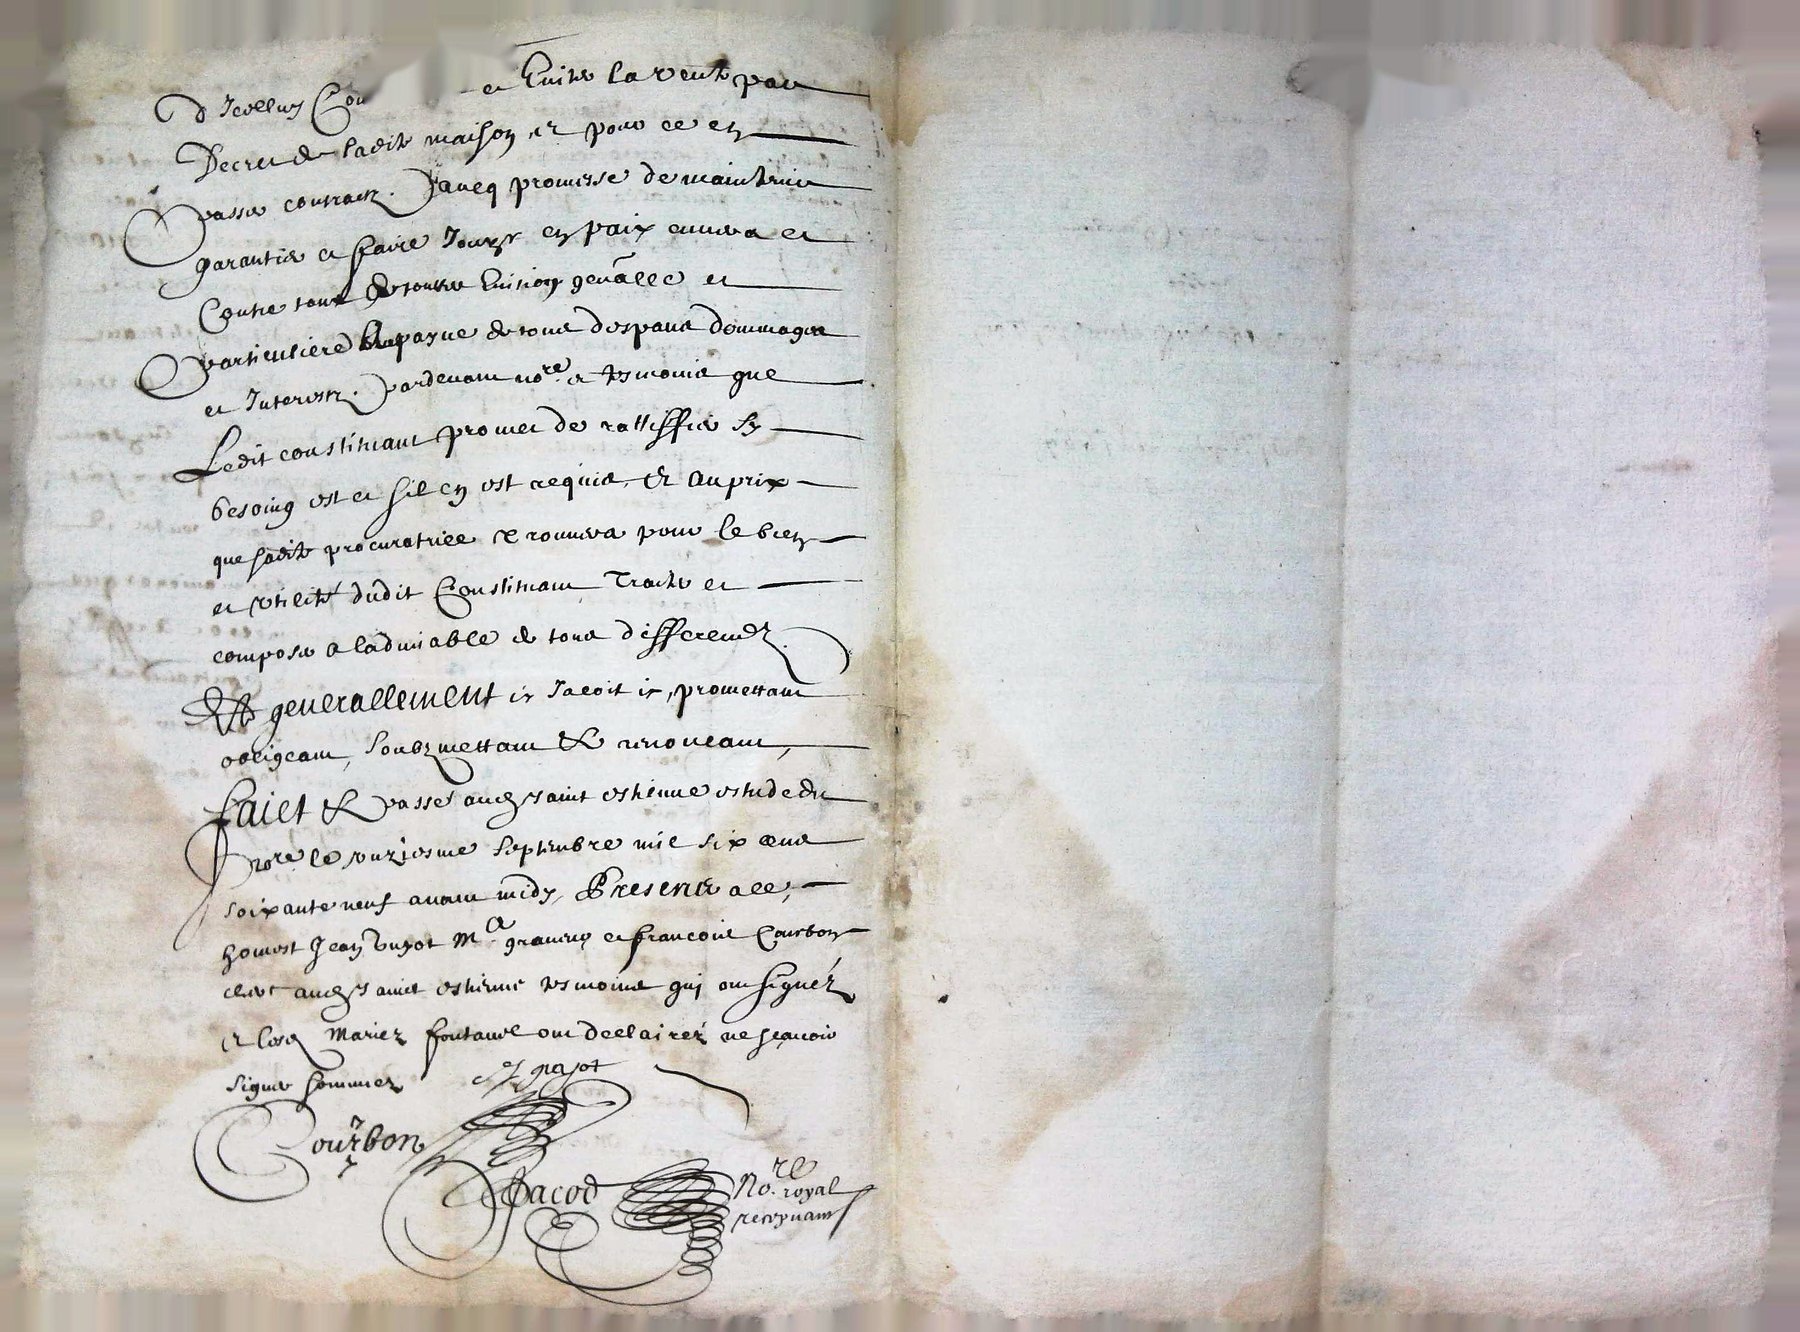 d'Icelluy Con et Eviter la vente par
Decret de ladite maison, et pour ce en
passer contractz. Avecq promesse de maintenir
garantir et faire Jouyr en paix envers et
Contre tous de toutte Eviction gen̄alle et
particuliere a la payne de tous despans dommages
et Interestz. pardevant nore. et tesmoins que
Ledit constituant promet de rattiffier sy
besoing est et sil en est requis. Et au prix
que sadite procuratrice trouvera pour le bien
et utilité dudit Constituant Traiter et
composer a ladmiable de tous differendz
Et generallement etc Jacoit etc, promettant
obligeant, soubzmettant & renonceant,
faict & passé audt saint estienne estude du
nore le unziesme septembre mil six cens
soixante neuf avant midy, Presentz a ce,
honest Jean pugot Me graveur et francois Courbon
clerc audt sainct estienne tesmoins qui ont signéz
et lesd Mariez fontanel ont declairéz ne scavoir
signer sommez
Courbon
Jacod
Nore. royal
recepvant